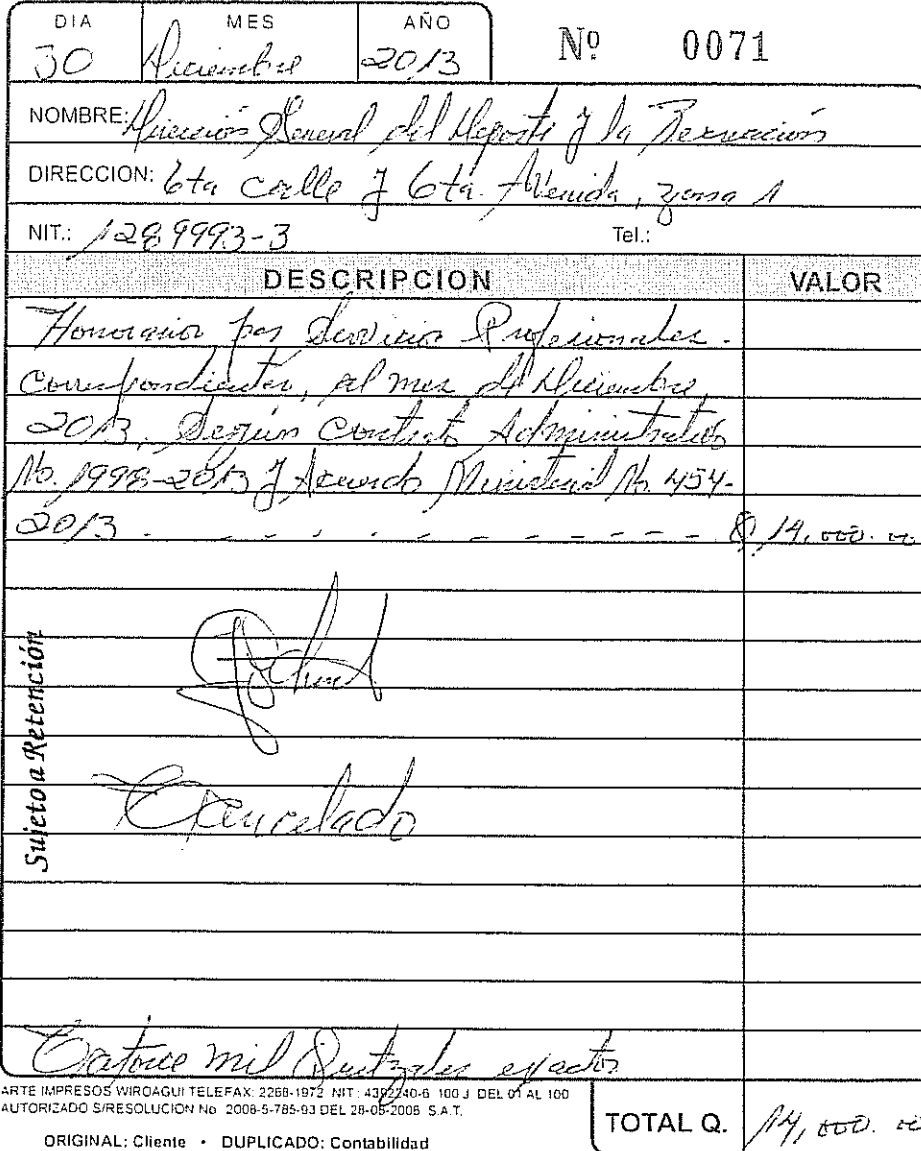 DIA MES AÑO
30 Diciembre 2013
Nº 0071
NOMBRE: Dirección General del Deporte y la Recreación
DIRECCION: 6ta calle y 6ta. Avenida, zona 1
NIT.: 1289993-3 Tel.:
DESCRIPCION VALOR
Honorarios por Servicios Profesionales.
Correspondientes, al mes de Diciembre
2013, Según Contrato Administrativo
No. 1998-2013 y Acuerdo Ministerial No. 454-
2013 . - - - - - - - - - - - Q 14,000.00
Sujeto a Retención
Cancelado
Catorce mil Quetzales exactos
ARTE IMPRESOS WIROAGUI TELEFAX: 2268-1972 NIT: 4392240-6 100 J DEL 01 AL 100
AUTORIZADO S/RESOLUCION No. 2008-5-785-93 DEL 28-05-2008 S.A.T.
TOTAL Q. 14,000.00
ORIGINAL: Cliente • DUPLICADO: Contabilidad